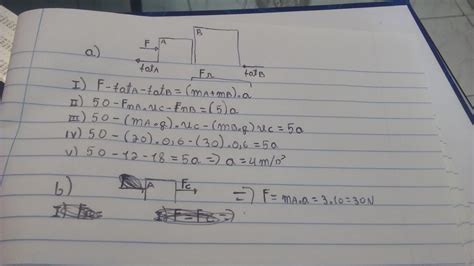 a)
F A B
fatA FA fatB
I) F-fatA-fatB=(mA+mB).a
II) 50-FnA.uc-FnB=(5)a
III) 50-(mA.g).uc-(mB.g)uc=5a
IV) 50-(20).0,6-(30).0,6=5a
V) 50-12-18=5a=>a=4m/s²
b) A Fc =) F=mA.a=3.10=30N